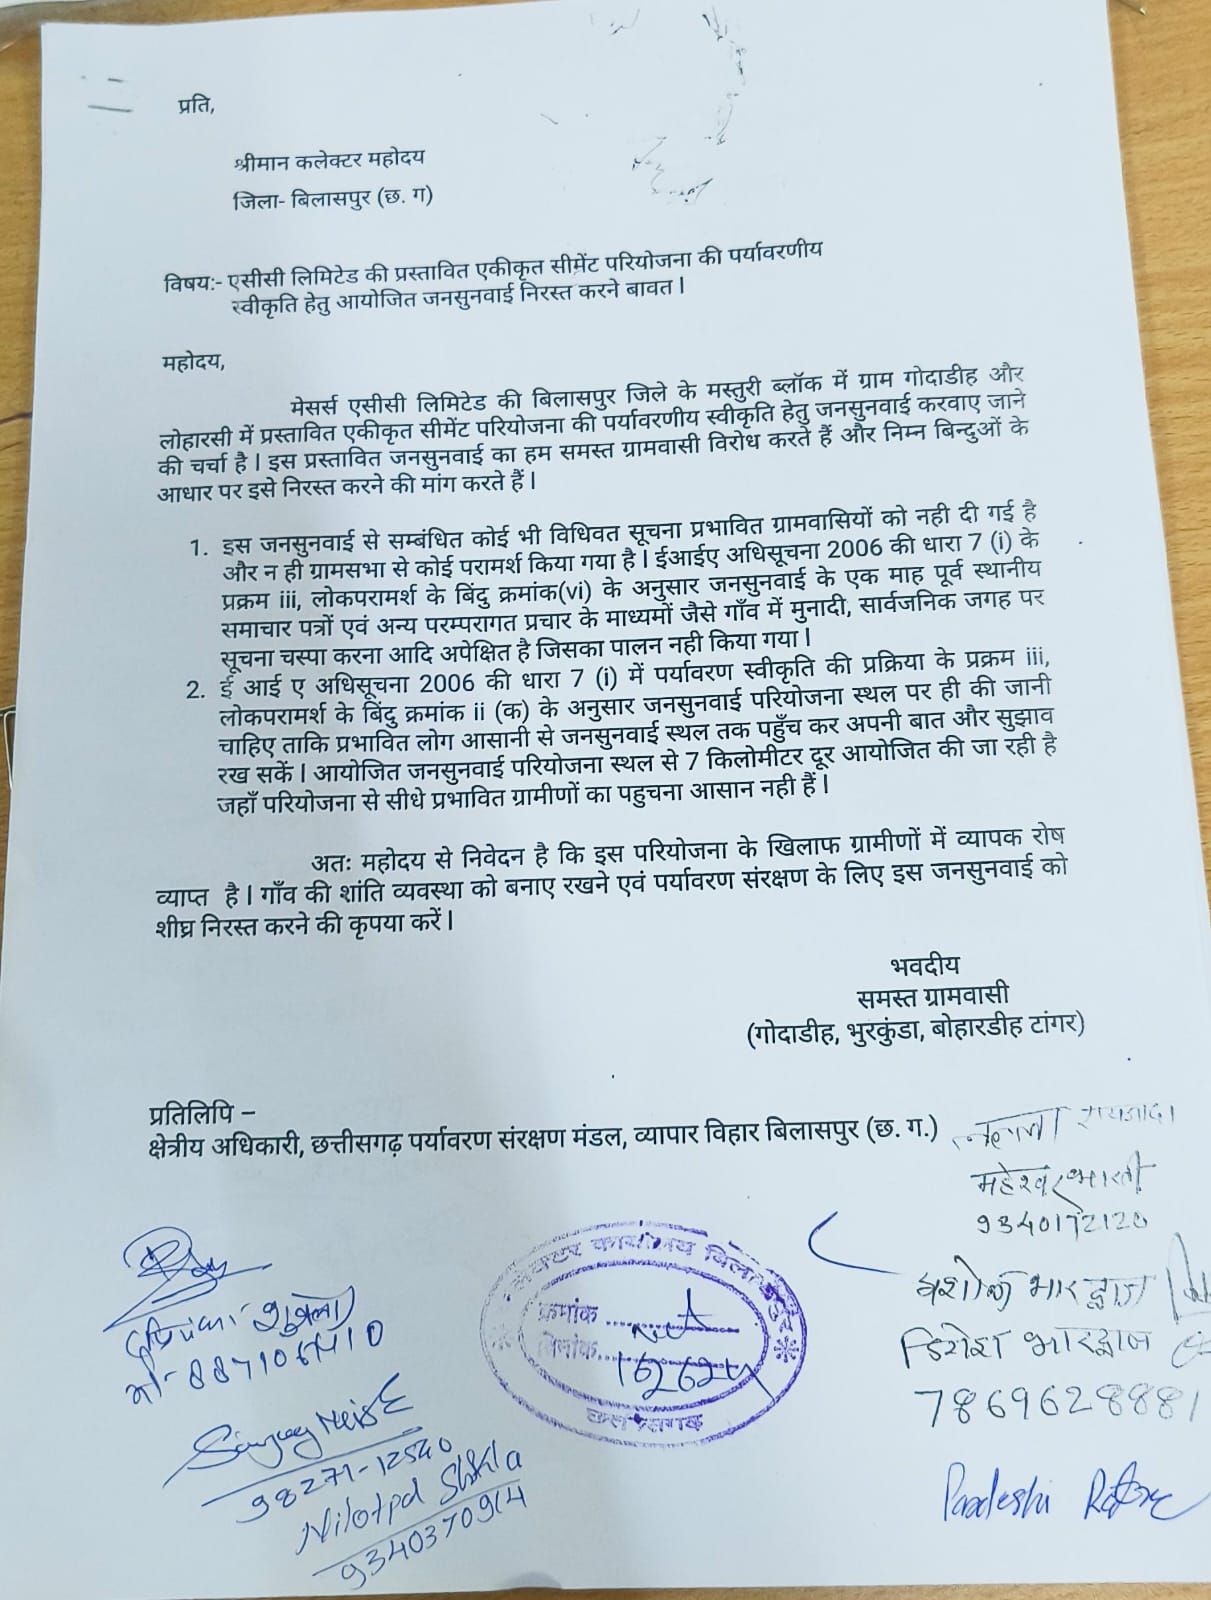 प्रति,
श्रीमान कलेक्टर महोदय
जिला- बिलासपुर (छ. ग)
विषय:- एसीसी लिमिटेड की प्रस्तावित एकीकृत सीमेंट परियोजना की पर्यावरणीय
स्वीकृति हेतु आयोजित जनसुनवाई निरस्त करने बावत।
महोदय,
मेसर्स एसीसी लिमिटेड की बिलासपुर जिले के मस्तुरी ब्लॉक में ग्राम गोदाडीह और
लोहारसी में प्रस्तावित एकीकृत सीमेंट परियोजना की पर्यावरणीय स्वीकृति हेतु जनसुनवाई करवाए जाने
की चर्चा है। इस प्रस्तावित जनसुनवाई का हम समस्त ग्रामवासी विरोध करते हैं और निम्न बिन्दुओं के
आधार पर इसे निरस्त करने की मांग करते हैं।
1. इस जनसुनवाई से सम्बंधित कोई भी विधिवत सूचना प्रभावित ग्रामवासियों को नही दी गई है
और न ही ग्रामसभा से कोई परामर्श किया गया है। ईआईए अधिसूचना 2006 की धारा 7 (i) के
प्रक्रम iii, लोकपरामर्श के बिंदु क्रमांक(vi) के अनुसार जनसुनवाई के एक माह पूर्व स्थानीय
समाचार पत्रों एवं अन्य परम्परागत प्रचार के माध्यमों जैसे गाँव में मुनादी, सार्वजनिक जगह पर
सूचना चस्पा करना आदि अपेक्षित है जिसका पालन नही किया गया।
2. ई आई ए अधिसूचना 2006 की धारा 7 (i) में पर्यावरण स्वीकृति की प्रक्रिया के प्रक्रम iii,
लोकपरामर्श के बिंदु क्रमांक ii (क) के अनुसार जनसुनवाई परियोजना स्थल पर ही की जानी
चाहिए ताकि प्रभावित लोग आसानी से जनसुनवाई स्थल तक पहुँच कर अपनी बात और सुझाव
रख सकें। आयोजित जनसुनवाई परियोजना स्थल से 7 किलोमीटर दूर आयोजित की जा रही है
जहाँ परियोजना से सीधे प्रभावित ग्रामीणों का पहुचना आसान नही हैं।
अतः महोदय से निवेदन है कि इस परियोजना के खिलाफ ग्रामीणों में व्यापक रोष
व्याप्त है। गाँव की शांति व्यवस्था को बनाए रखने एवं पर्यावरण संरक्षण के लिए इस जनसुनवाई को
शीघ्र निरस्त करने की कृपया करें।
भवदीय
समस्त ग्रामवासी
(गोदाडीह, भुरकुंडा, बोहारडीह टांगर)
प्रतिलिपि –
क्षेत्रीय अधिकारी, छत्तीसगढ़ पर्यावरण संरक्षण मंडल, व्यापार विहार बिलासपुर (छ. ग.)
महेश्वर भारती
9340172120
भारद्वाज
भारद्वाज
7869628881
Pardeshi
प्रियंका शुक्ला
98271-12540
Nilotpal Shukla
9340370914
कार्यालय
क्रमांक
दिनांक